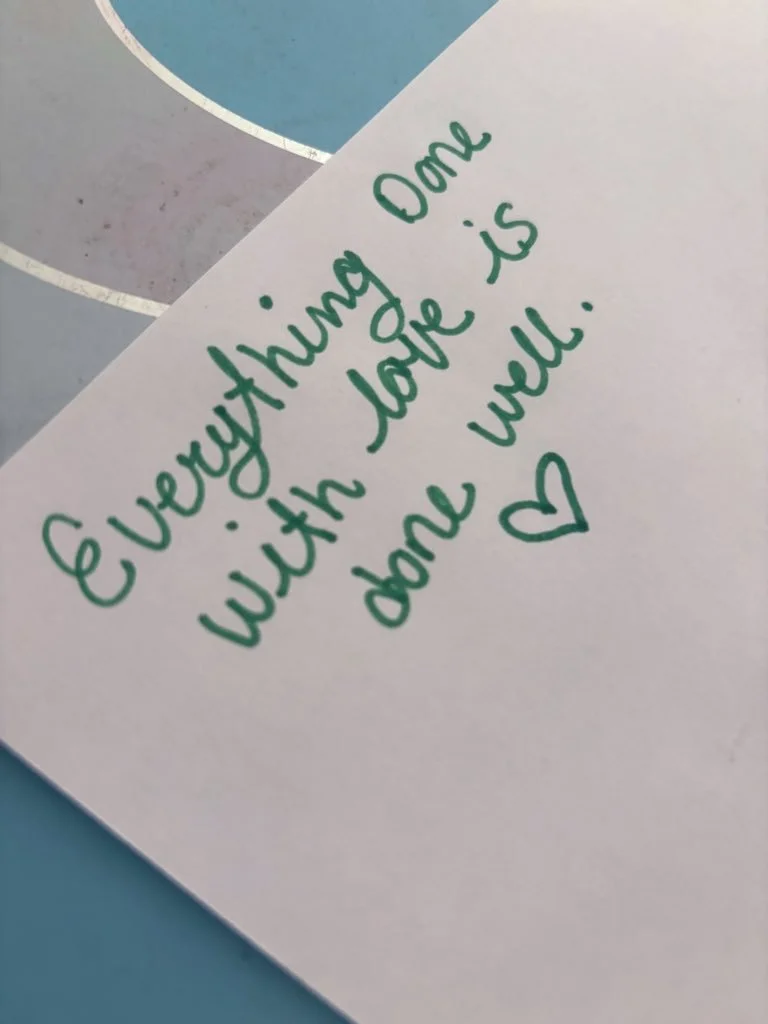 Everything Done
with love is
done well.
♡